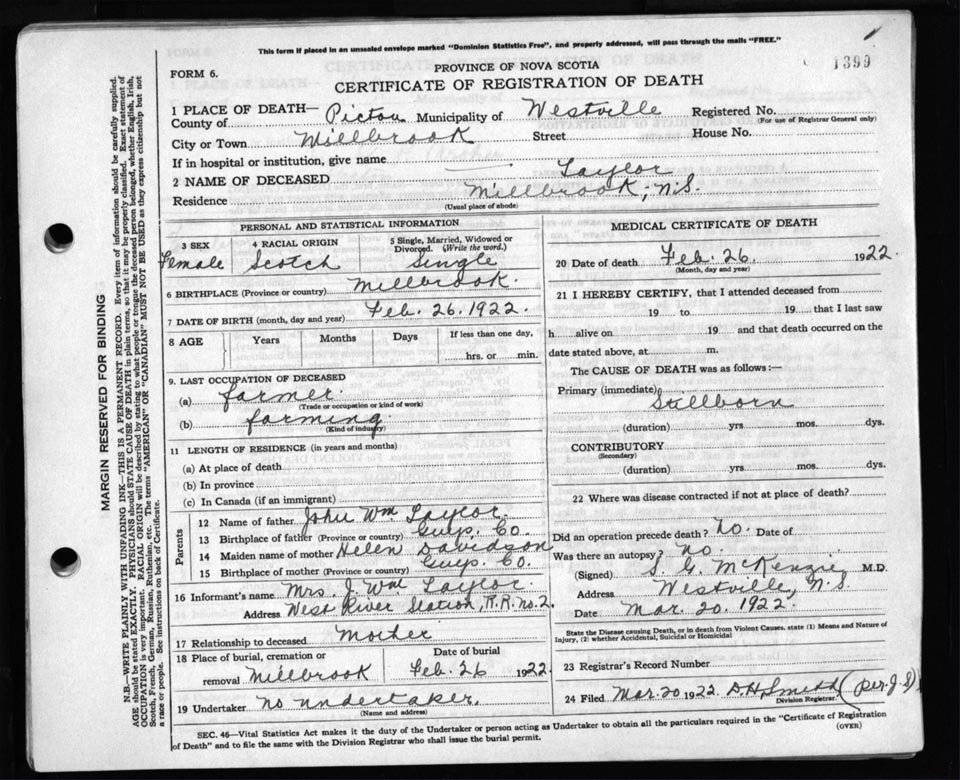 This form if placed in an unsealed envelope marked "Dominion Statistics Free", and properly addressed, will pass through the mails "FREE."
FORM 6.
PROVINCE OF NOVA SCOTIA
1399
CERTIFICATE OF REGISTRATION OF DEATH
1 PLACE OF DEATH—
County of Pictou Municipality of Westville Registered No.
(For use of Registrar General only)
City or Town Millbrook Street House No.
If in hospital or institution, give name
2 NAME OF DECEASED — Taylor
Residence Millbrook, N.S.
(Usual place of abode)
PERSONAL AND STATISTICAL INFORMATION
3 SEX 4 RACIAL ORIGIN 5 Single, Married, Widowed or Divorced. (Write the word.)
Female Scotch Single
6 BIRTHPLACE (Province or country) Millbrook.
7 DATE OF BIRTH (month, day and year) Feb. 26. 1922.
8 AGE Years Months Days If less than one day,
hrs. or min.
9. LAST OCCUPATION OF DECEASED
(a) farmer.
(Trade or occupation or kind of work)
(b) farming
(Kind of industry)
11 LENGTH OF RESIDENCE (in years and months)
(a) At place of death
(b) In province
(c) In Canada (if an immigrant)
Parents
12 Name of father John Wm Taylor.
13 Birthplace of father (Province or country) Guys. Co.
14 Maiden name of mother Helen Davidson
15 Birthplace of mother (Province or country) Guys. Co.
16 Informant's name Mrs. J. Wm Taylor.
Address West River Station, R.R. No. 2.
17 Relationship to deceased Mother
18 Place of burial, cremation or removal Millbrook
Date of burial
Feb. 26 1922
19 Undertaker No undertaker.
(Name and address)
MEDICAL CERTIFICATE OF DEATH
20 Date of death Feb. 26. 1922.
(Month, day and year)
21 I HEREBY CERTIFY, that I attended deceased from
19 to 19 that I last saw
h alive on 19 and that death occurred on the
date stated above, at m.
The CAUSE OF DEATH was as follows:—
Primary (immediate)
Stillborn
(duration) yrs mos. dys.
CONTRIBUTORY
(Secondary)
(duration) yrs. mos. dys.
22 Where was disease contracted if not at place of death?
Did an operation precede death? No. Date of
Was there an autopsy? No.
(Signed) S. G. McKenzie, M.D.
Address Westville, N.S.
Date Mar. 20. 1922.
State the Disease causing Death, or in death from Violent Causes, state (1) Means and Nature of
Injury, (2) whether Accidental, Suicidal or Homicidal
23 Registrar's Record Number
24 Filed Mar. 20 1922. D H Smith (per. J. S)
Division Registrar.
SEC. 46—Vital Statistics Act makes it the duty of the Undertaker or person acting as Undertaker to obtain all the particulars required in the "Certificate of Registration
of Death" and to file the same with the Division Registrar who shall issue the burial permit.
(OVER)
MARGIN RESERVED FOR BINDING
N.B.—WRITE PLAINLY WITH UNFADING INK—THIS IS A PERMANENT RECORD. Every item of information should be carefully supplied.
AGE should be stated EXACTLY. PHYSICIANS should STATE CAUSE OF DEATH in plain terms, so that it may be properly classified. Exact statement of
OCCUPATION is very important. RACIAL ORIGIN will be described by stating to what people or tongue the deceased person belonged, whether English, Irish,
Scotch, French, German, Russian, Ruthenian, etc. The terms "AMERICAN" OR "CANADIAN" MUST NOT BE USED as they express citizenship but not
a race or people. See instructions on back of Certificate.